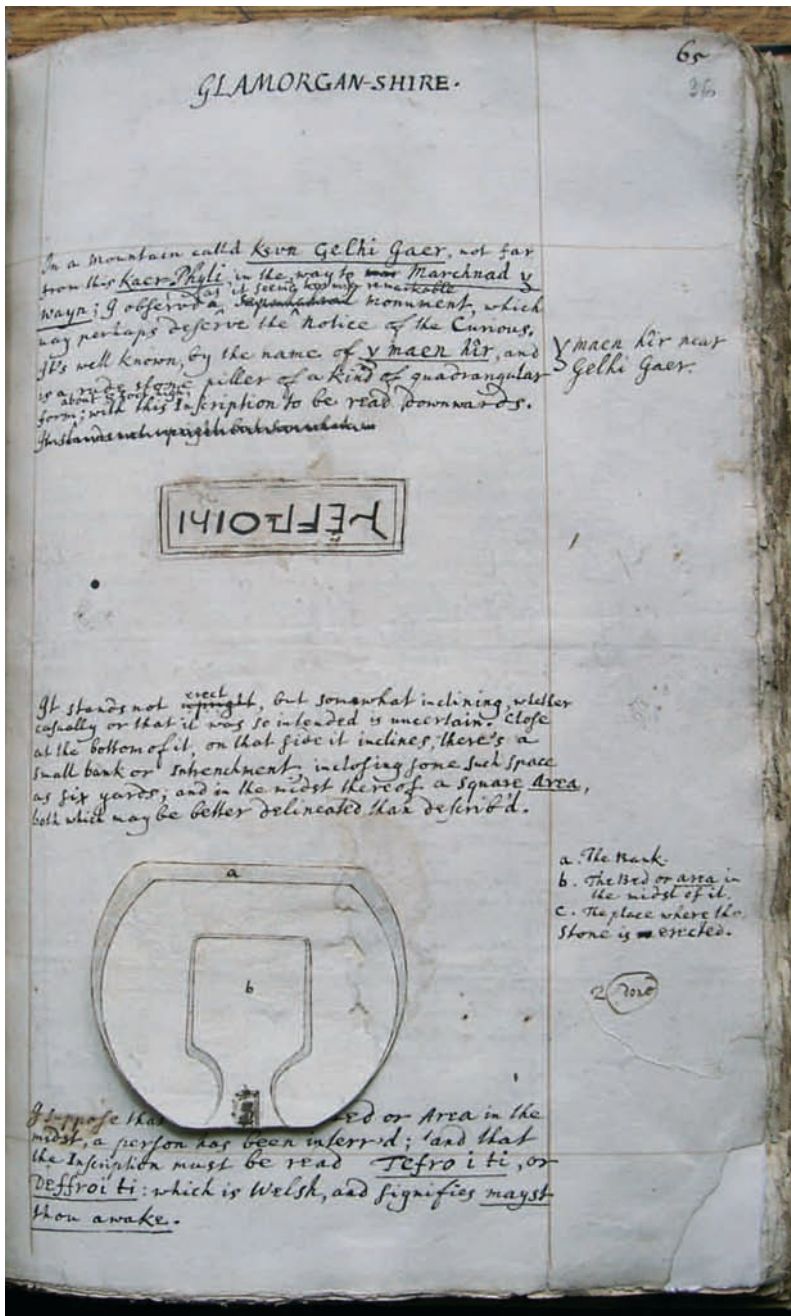 65
GLAMORGAN-SHIRE.
In a mountain calld Kevn Gelhi Gaer, not far
from this Kaer-Phyli; in the way to Marchnad y
wayn; I observd a remarkable monument, which
may perhaps deserve the Notice of the Curious.
It's well known, by the name of y maen hîr, and
is a rude stone piller of a kind of quadrangular
about 8 foot high;
form; with this Inscription to be read downwards.
It stands not upright but somewhat
y maen hîr near
Gelhi Gaer.
It stands not erect upright, but somwhat inclining, whether
casually or that it was so intended is uncertain. Close
at the bottom of it, on that side it inclines, there's a
small bank or Intrenchment, inclosing some such space
as six yards; and in the midst thereof a square Area,
both which may be better delineated than describ'd.
a
b
a. The Bank.
b. The Bed or area in
the midst of it.
c. The place where the
Stone is erected.
I suppose that Bed or Area in the
midst, a person has been interr'd; and that
the Inscription must be read Tefro i ti, or
Deffroi ti: which is Welsh, and signifies mayst
thou awake.